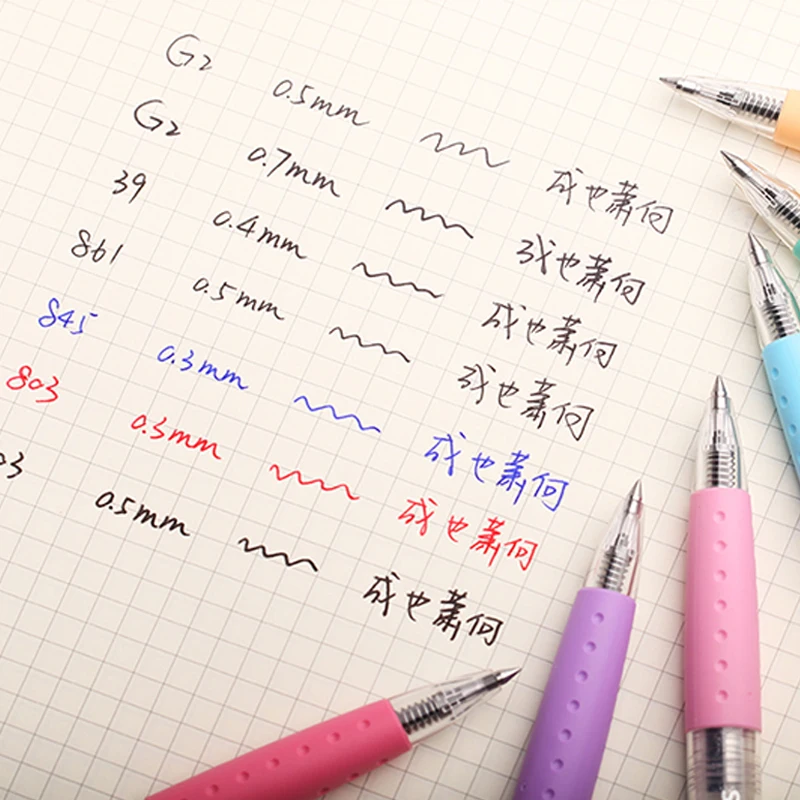 G2 0.5mm 成也萧何
G2 0.7mm 成也萧何
39 0.4mm 成也萧何
861 0.5mm 成也萧何
845 0.3mm 成也萧何
803 0.5mm 成也萧何
03 0.5mm 成也萧何
S